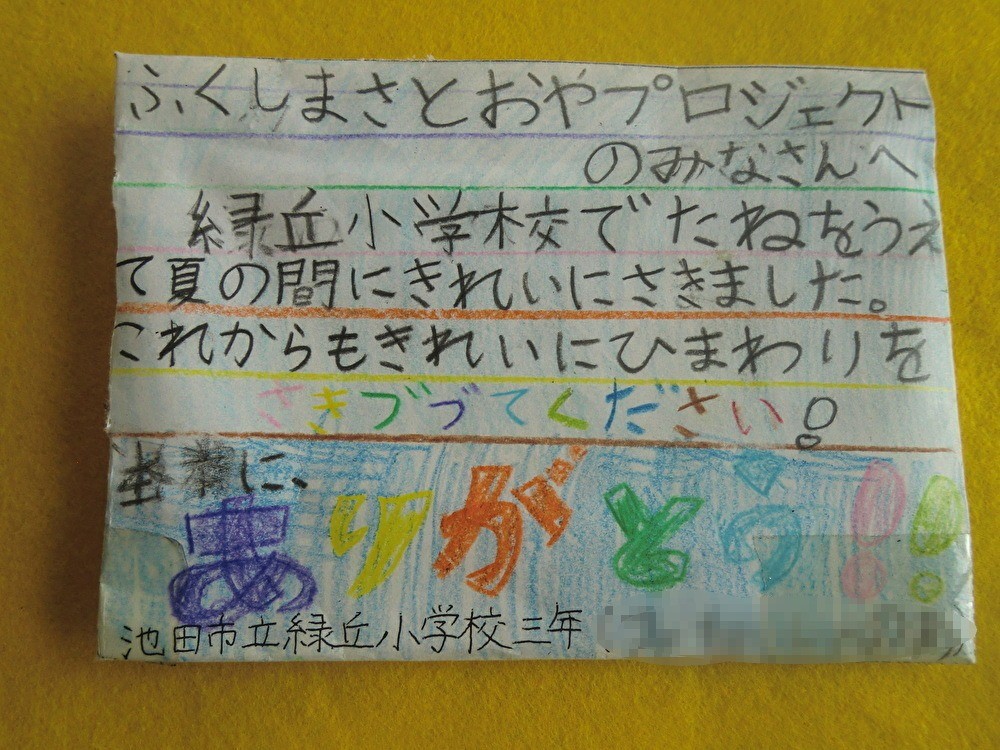 ふくしまさとおやプロジェクト
のみなさんへ
緑丘小学校でたねをうえ
て夏の間にきれいにさきました。
これからもきれいにひまわりを
さきつづてください!
に、
ありがとう!!
池田市立緑丘小学校三年